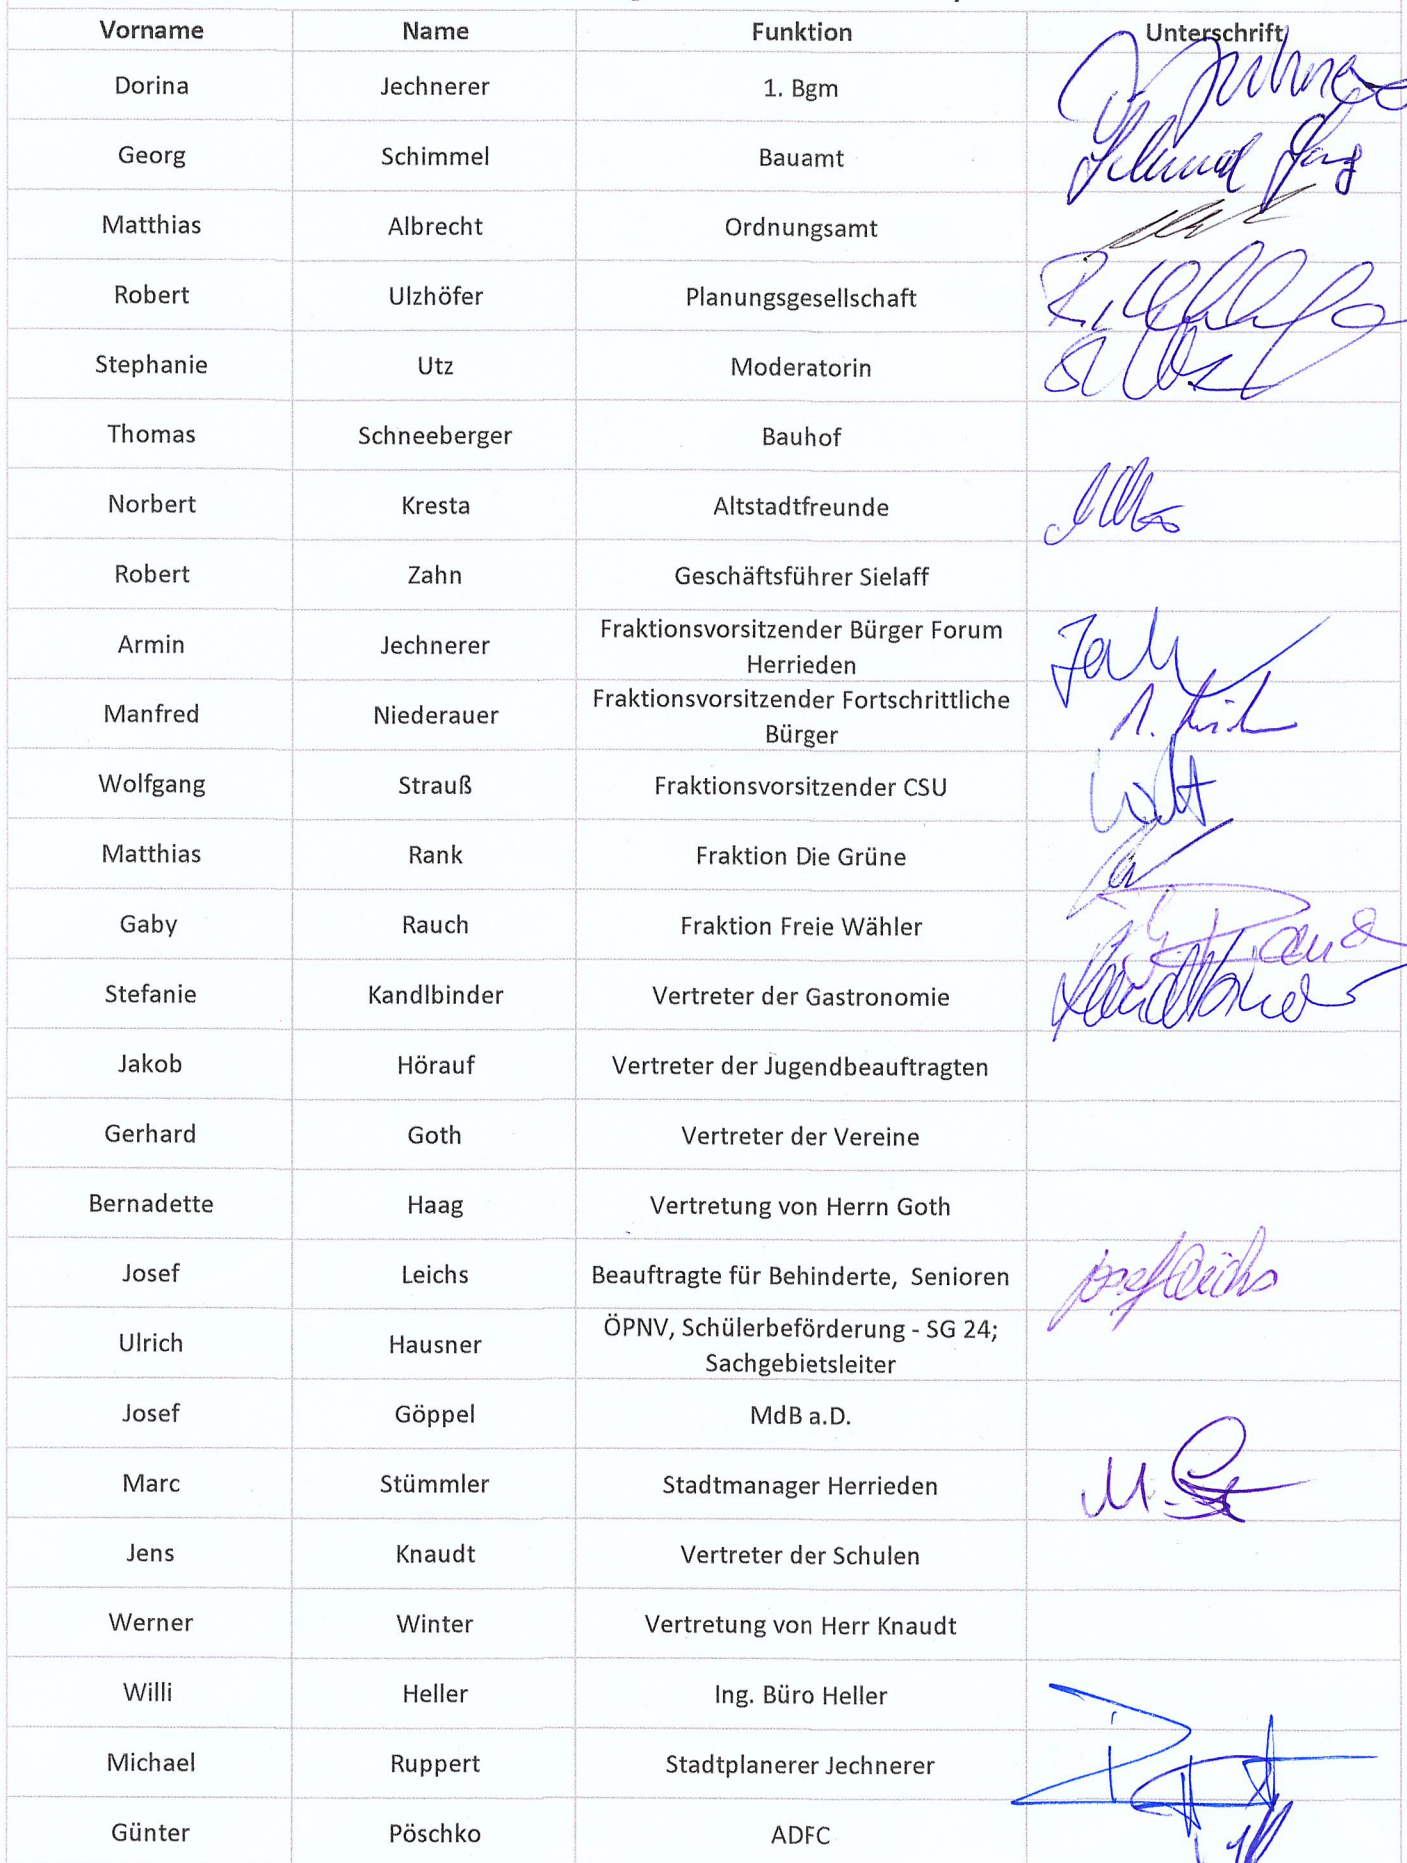 Vorname Name Funktion Unterschrift
Dorina Jechnerer 1. Bgm
Georg Schimmel Bauamt
Matthias Albrecht Ordnungsamt
Robert Ulzhöfer Planungsgesellschaft
Stephanie Utz Moderatorin
Thomas Schneeberger Bauhof
Norbert Kresta Altstadtfreunde
Robert Zahn Geschäftsführer Sielaff
Armin Jechnerer Fraktionsvorsitzender Bürger Forum
Herrieden
Manfred Niederauer Fraktionsvorsitzender Fortschrittliche
Bürger
Wolfgang Strauß Fraktionsvorsitzender CSU
Matthias Rank Fraktion Die Grüne
Gaby Rauch Fraktion Freie Wähler
Stefanie Kandlbinder Vertreter der Gastronomie Kandlbinder
Jakob Hörauf Vertreter der Jugendbeauftragten
Gerhard Goth Vertreter der Vereine
Bernadette Haag Vertretung von Herrn Goth
Josef Leichs Beauftragte für Behinderte, Senioren Josef Leichs
Ulrich Hausner ÖPNV, Schülerbeförderung - SG 24;
Sachgebietsleiter
Josef Göppel MdB a.D.
Marc Stümmler Stadtmanager Herrieden
Jens Knaudt Vertreter der Schulen
Werner Winter Vertretung von Herr Knaudt
Willi Heller Ing. Büro Heller
Michael Ruppert Stadtplanerer Jechnerer
Günter Pöschko ADFC